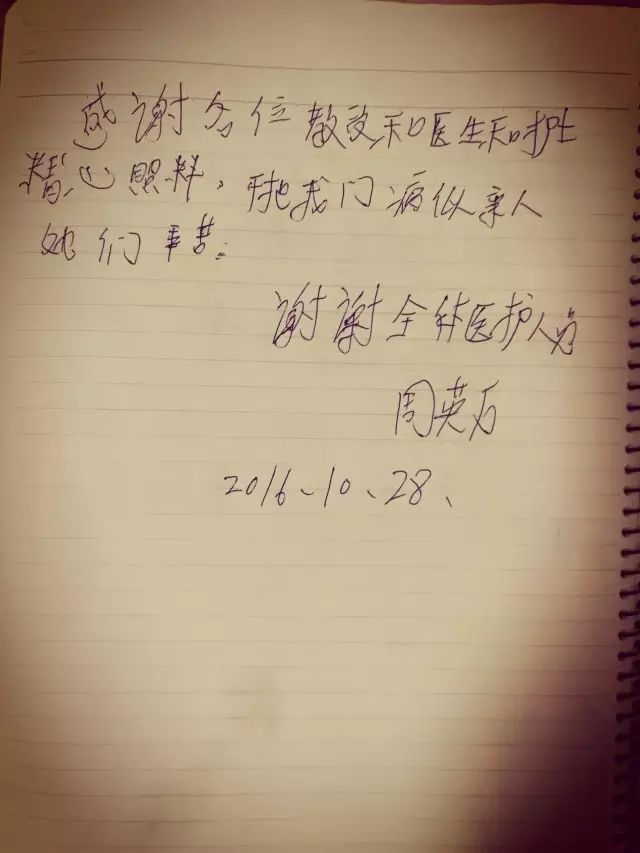 感谢各位教授和医生和护士
精心照料，把我门病似亲人
她们辛苦。
谢谢全体医护人员
周英万
2016、10、28、